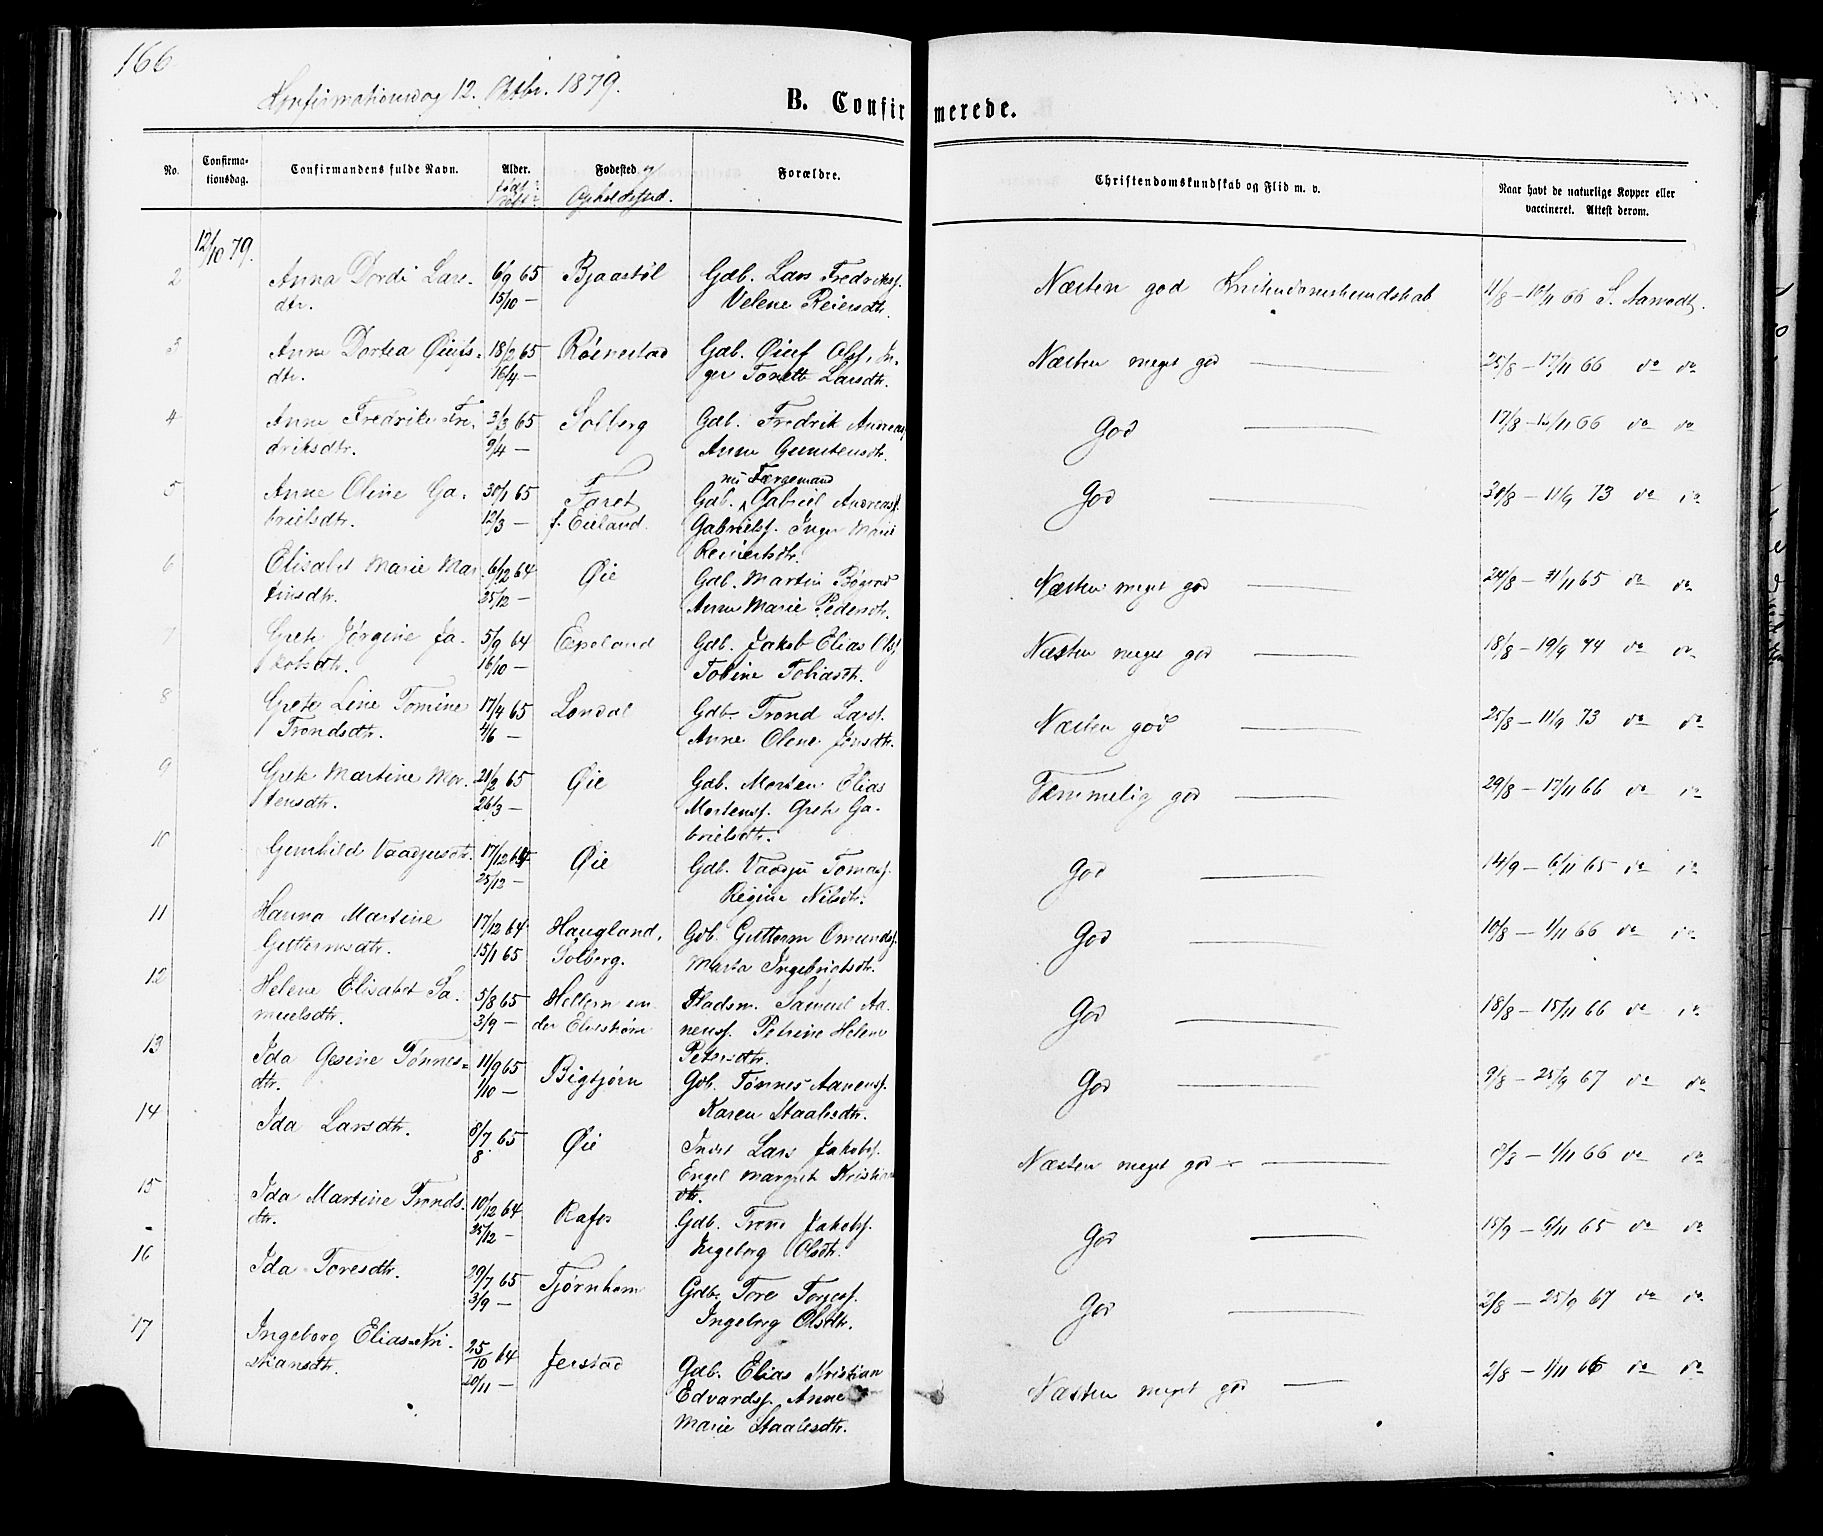 166
Confirmationsdag 12. Oktbr. 1879.
B. Confirmerede.
No.
Confirmationsdag.
Confirmandens fulde Navn.
Alder.
født
døbt
Fødested og
Opholdssted.
Forældre.
Christendomskundskab og Flid m. v.
Naar havt de naturlige Kopper eller
vaccineret. Attest derom.
12/10 79.
2 Anna Dordi Lars- 6/9 65 Bjaastøl Gdb. Lars Fredriksf. Næsten god Kristendomskundskab 4/8 – 10/11 66 S. Aamodt.
dtr. 15/10 — Velene Reiersdtr.
3 Anne Dortea Øiufs- 18/2 65 Røinestad Gdb. Øiuf Olsf. In- Næsten meget god — 25/8 – 17/11 66 do do
dtr. 16/4 — ger Tonette Larsdtr.
4 Anne Fredrike Fre- 3/3 65 Solberg Gdb. Fredrik Andreasf. God — 17/8 – 11 66 do do
driksdtr. 9/4 — Anne Gunstensdtr.
nu Færgemand
5 Anne Oline Ga- 30/1 65 Faret Gdb. Gabriel Andreas God — 30/8 – 11/9 73 do do
brielsdtr. 12/3 — f. Eieland. Gabrielsf. Inger Marie
Reinertsdtr.
6 Elisabet Marie Mar- 6/12 64 Øie Gdb. Martin Næsten meget god — 24/8 – 11 65 do do
tinsdtr. 25/12 — Anne Marie Pedersdtr.
7 Grete Jørgine Ja- 5/9 64 Epeland Gdb. Jakob Elias Olsf. Næsten meget god — 18/8 – 19/9 74 do do
kobsdtr. 16/10 — Tobine Tobiasdtr.
8 Grete Line Tomine 17/4 65 Londal Gdb. Trond Larsf. Næsten god — 25/8 – 11/9 73 do do
Trondsdtr. 4/6 — Anne Olene Jonsdtr.
9 Grete Martine Mor- 21/2 65 Øie Gdb. Morten Elias Temmelig god — 29/8 – 17/11 66 do do
tensdtr. 26/3 — Mortensf. Grete Ga-
brielsdtr.
10 Gunhild Vaagesdtr. 17/12 64 Øie Gdb. Tomasf. God — 14/9 – 6/11 65 do do
25/12 — Regine Nilsdtr.
11 Hanna Martine 17/12 64 Haugland, Gdb. Guttorm Omundsf. God — 10/8 – 1/11 66 do do
Guttormsdtr. 15/1 65 Solberg. Marta Ingebrigtsdtr.
12 Helene Elisabet Sa- 5/8 65 Hellern un- Pladsm. Samuel Aa- God — 18/8 – 15/11 66 do do
muelsdtr. 3/9 — der Elvestrøm nensf. Petrine Helene
Petersdtr.
13 Ida Gesine Tønnes- 11/9 65 Bigtjørn Gdb. Tønnes Aanensf. God — 9/8 – 25/9 67 do do
dtr. 1/10 — Karen Staalesdtr.
14 Ida Larsdtr. 8/7 65 Øie Inds. Lars Jakobsf. Næsten meget god — 8/8 – 1/11 66 do do
8 Engel Margret Kristians
dtr.
15 Ida Martine Tronds- 10/12 64 Rafos Gdb. Trond Jakobsf. God — 15/9 – 6/11 65 do do
dtr. 25/12 — Ingeborg Olsdtr.
16 Ida Toresdtr. 29/7 65 Tjørnhom Gdb. Tore Torjesf. God — 2/8 – 25/9 67 do do
3/9 — Ingeborg Olsdtr.
17 Ingeborg Elias-Kri- 25/10 64 Jerstad Gdb. Elias Kristian Næsten meget god — 2/8 – 1/11 66 do do
stiansdtr. 20/11 — Edvardsf. Anne
Marie Staalesdtr.